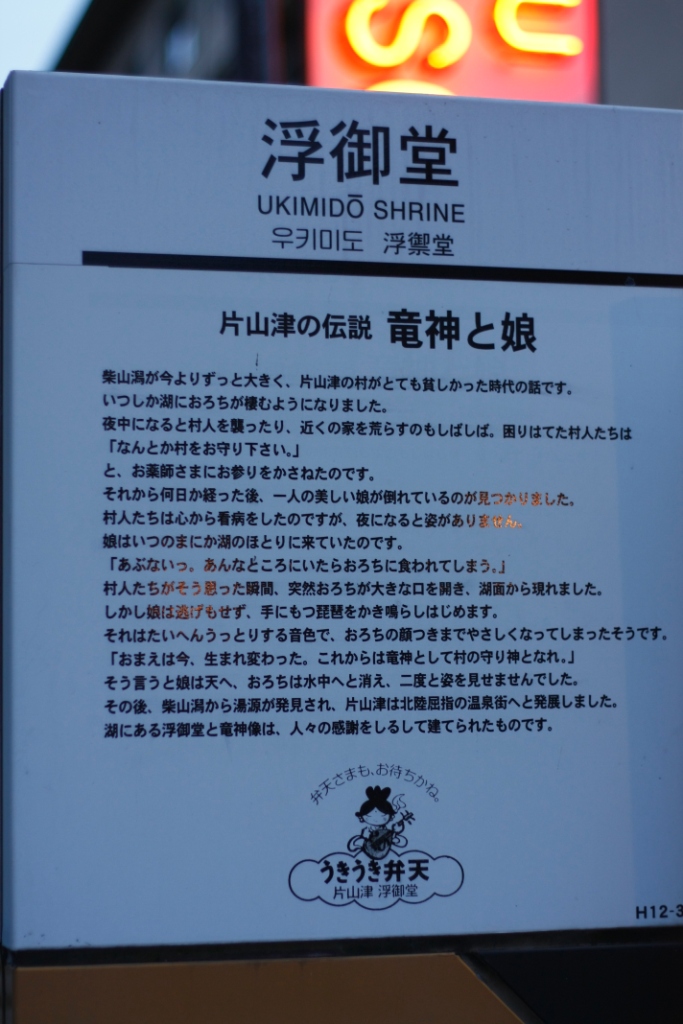 浮御堂
UKIMIDŌ SHRINE
우키미도 浮禦堂
片山津の伝説 竜神と娘
柴山潟が今よりずっと大きく、片山津の村がとても貧しかった時代の話です。
いつしか湖におろちが棲むようになりました。
夜中になると村人を襲ったり、近くの家を荒らすのもしばしば。困りはてた村人たちは
「なんとか村をお守り下さい。」
と、お薬師さまにお参りをかさねたのです。
それから何日か経った後、一人の美しい娘が倒れているのが見つかりました。
村人たちは心から看病をしたのですが、夜になると姿がありません。
娘はいつのまにか湖のほとりに来ていたのです。
「あぶないっ。あんなところにいたらおろちに食われてしまう。」
村人たちがそう思った瞬間、突然おろちが大きな口を開き、湖面から現れました。
しかし娘は逃げもせず、手にもつ琵琶をかき鳴らしはじめます。
それはたいへんうっとりする音色で、おろちの顔つきまでやさしくなってしまったそうです。
「おまえは今、生まれ変わった。これからは竜神として村の守り神となれ。」
そう言うと娘は天へ、おろちは水中へと消え、二度と姿を見せませんでした。
その後、柴山潟から湯源が発見され、片山津は北陸屈指の温泉街へと発展しました。
湖にある浮御堂と竜神像は、人々の感謝をしるして建てられたものです。
弁天さまも、お待ちかね。
うきうき弁天
片山津 浮御堂
H12-3